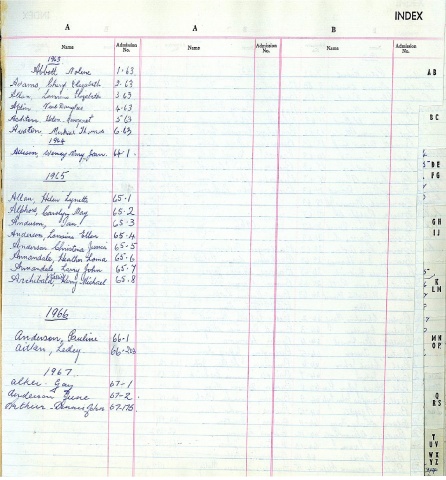 INDEX
A A B
Name Admission No. Name Admission No. Name Admission No.
1963
Abbott Noline 1.63
Adams, Cheryl Elizabeth 2.63
Allan, Lorraine Elizabeth 3.63
Neil Douglas 4.63
Ashton, Helen Margaret 5.63
Austin, Michael Thomas 6.63
1964
Allison, Wendy Mary Joan. 64.1.
1965
Allan, Helen Lynette 65.1
Carolyn May 65.2
Anderson, Ian 65.3
Anderson, Lorraine Ellen 65.4
Anderson Christine 65.5
Annandale, Heather Lorna 65.6
Annandale Larry John 65.7
Archibald, Kerry Michael 65.8
1966
Anderson, Pauline 66.1
Aitken, Lesley
1967
Gay 67-1
Anderson June 67-2
Arthur Dennis John 67-175
A B
B C
D E
F G
G H
I J
K
L M
M N
O P
Q
R S
T
U V
W X
Y Z